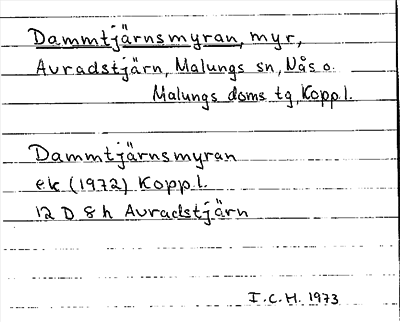 Dammtjärnsmyran, myr,
Avradstjärn, Malungs sn, Nås o.
Malungs doms tg, Kopp l.
Dammtjärnsmyran
ek (1972) Kopp l.
12 D 8 h Avradstjärn
I.C.H. 1973